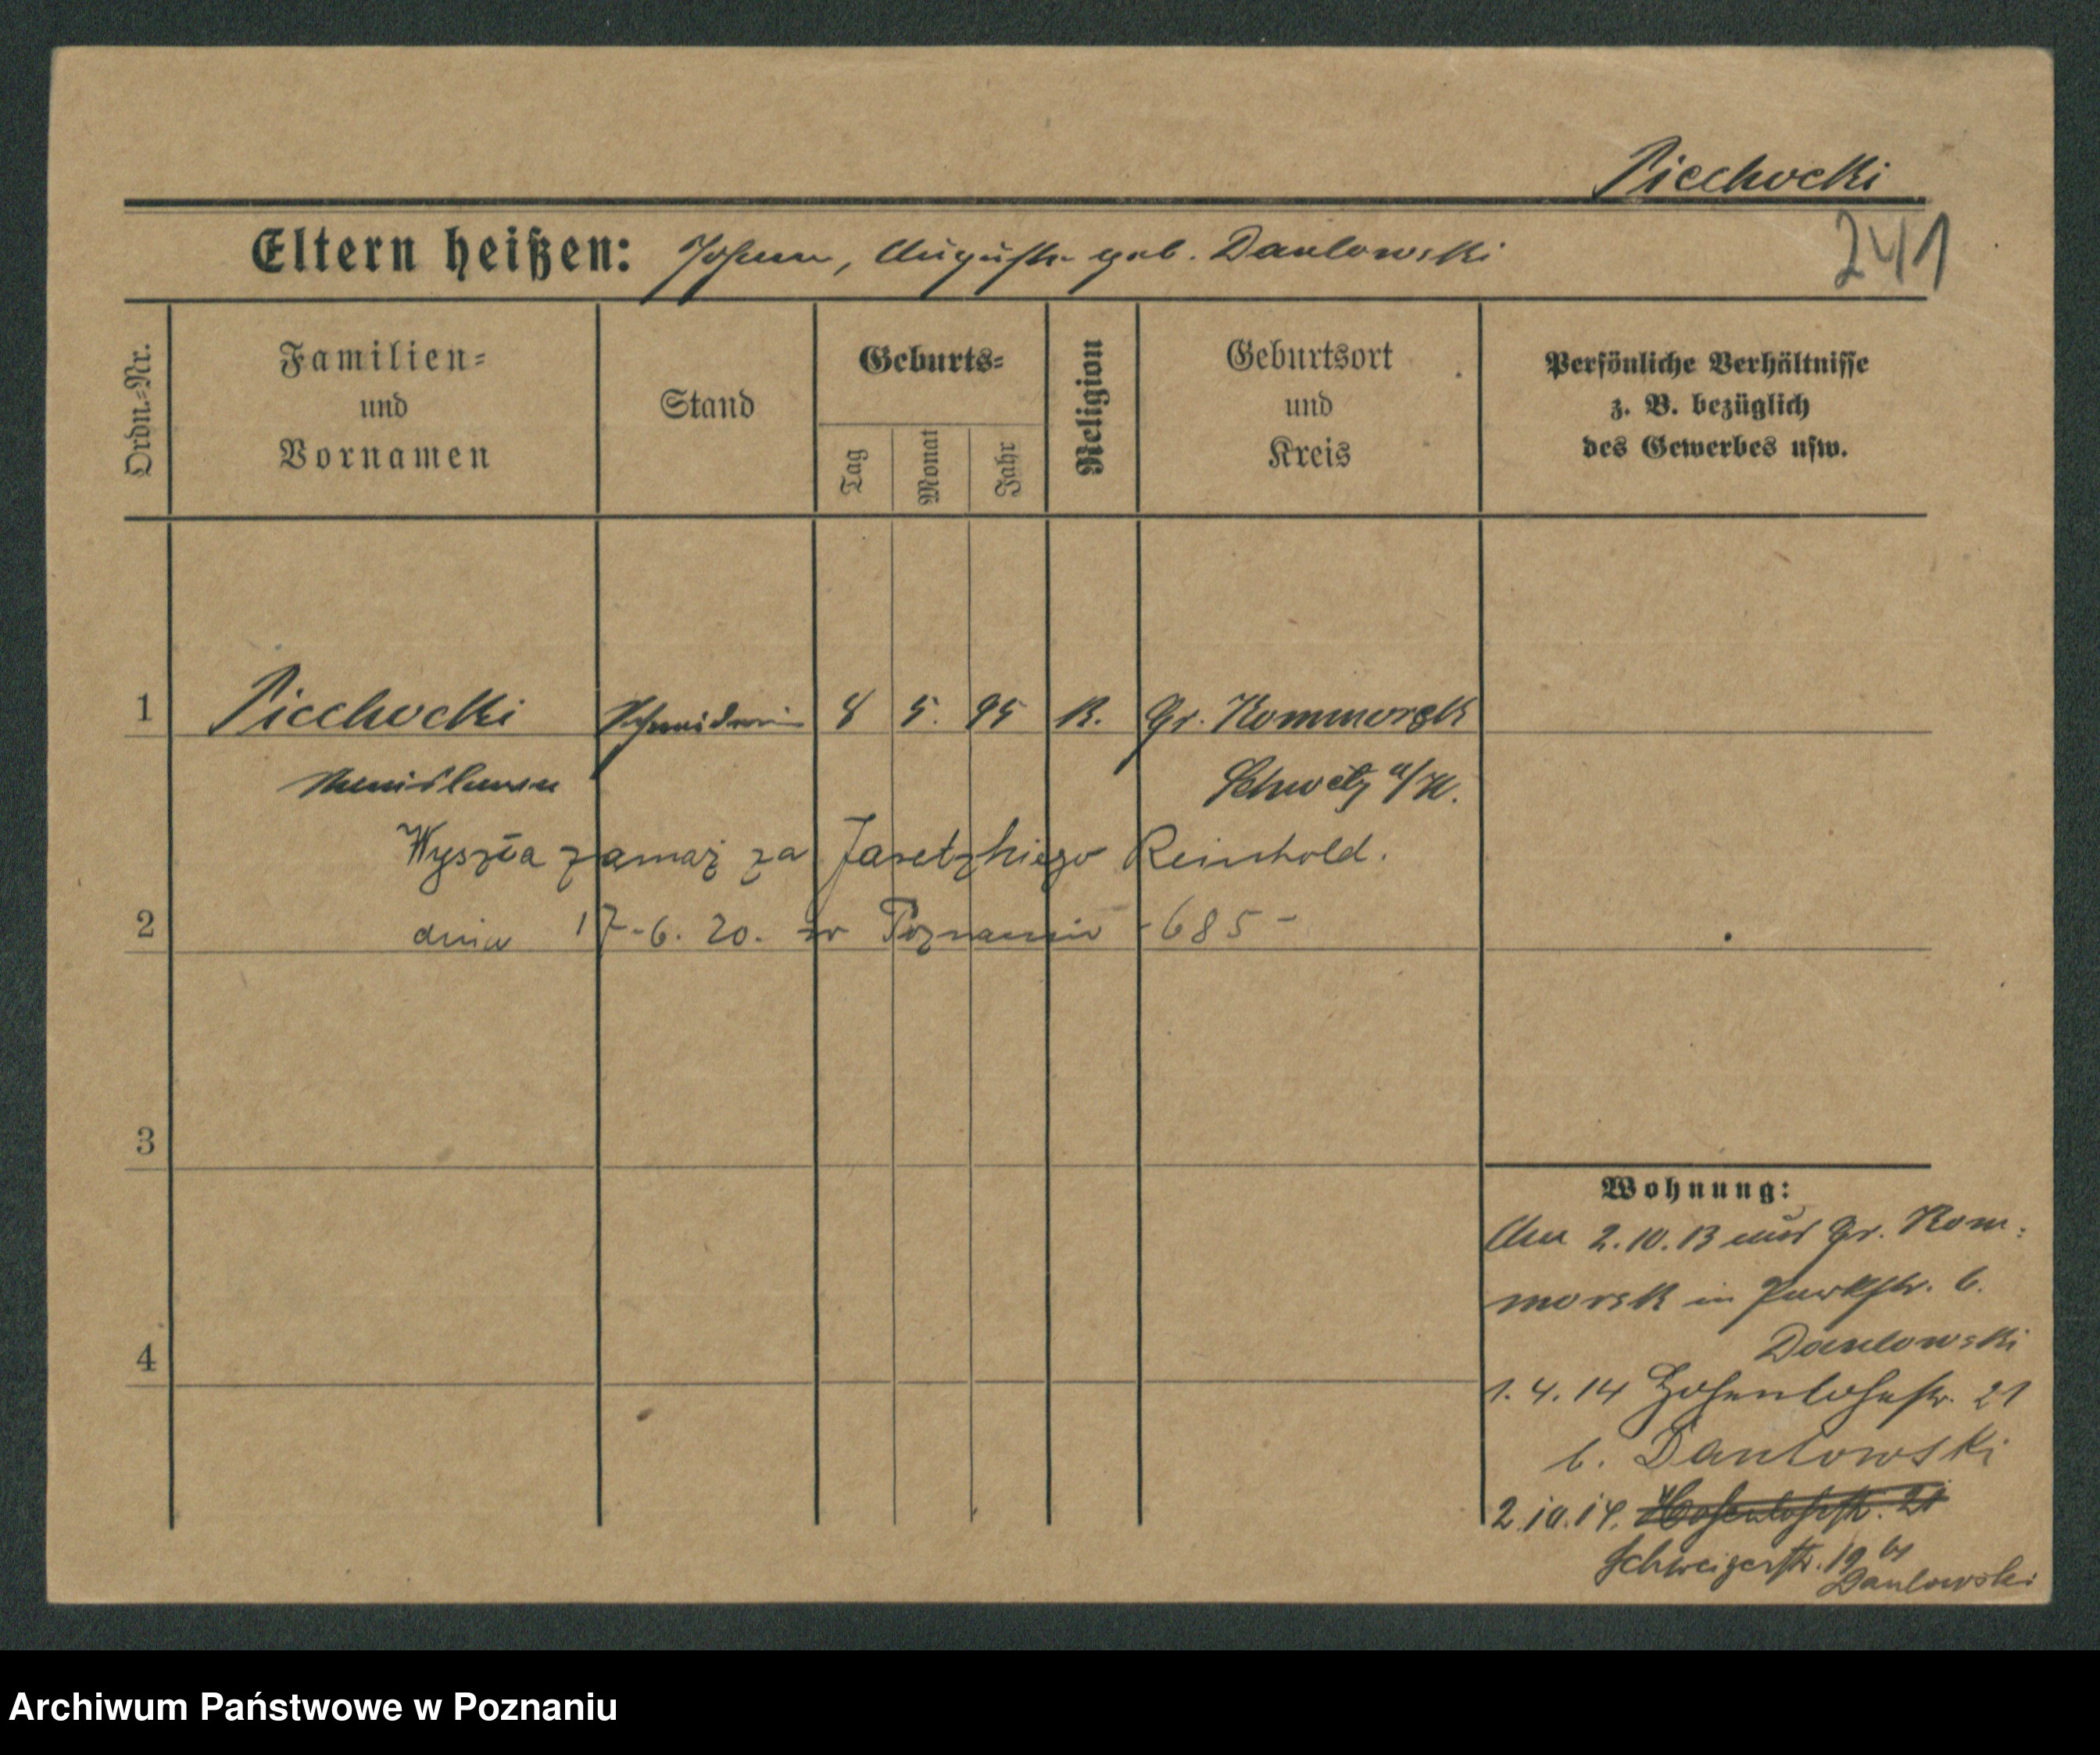 Piechocki
241
Eltern heißen: Johann, Auguste geb. Danlowski
Ordn.=Nr.
Familien=
und
Vornamen
Stand
Geburts=
Tag
Monat
Jahr
Religion
Geburtsort
und
Kreis
Persönliche Verhältnisse
z. B. bezüglich
des Gewerbes usw.
1 Piechocki 8 5. 95 K. Gr. Kommorsk
Schwetz a/W.
Wyszła zamąż za Jaretzkiego Reinhold.
2 dnia 17-6. 20. w Poznaniu -685-
3
4
Wohnung:
Am 2.10.13 aus Gr. Kom=
morsk in Parkstr. 6.
Danlowski
1.4.14 Hohenlohestr. 21
b. Danlowski
2.10.14. Hohenlohestr. 21
Schweizerstr. 19 b/
Danlowski
Archiwum Państwowe w Poznaniu